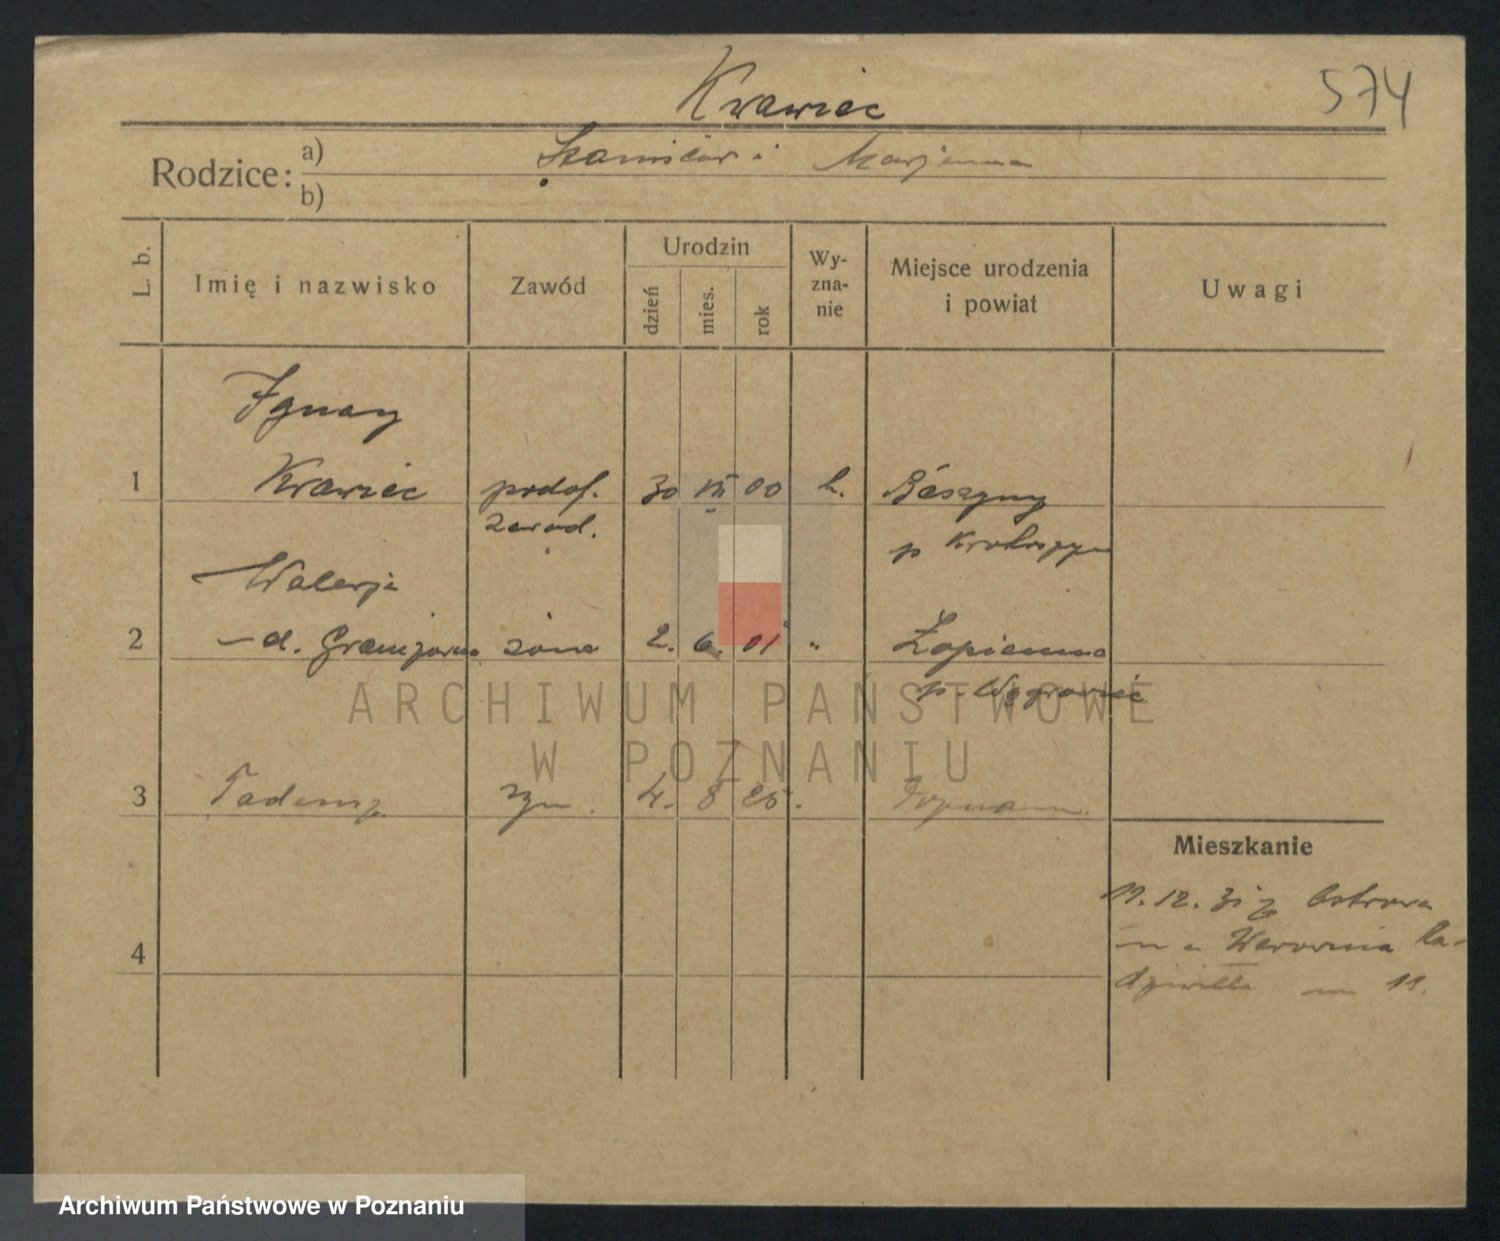 Krawiec
574
Rodzice:
a) Stanisław i Marjanna
b)
L. b.
Imię i nazwisko
Zawód
Urodzin
dzień
mies.
rok
Wy-
zna-
nie
Miejsce urodzenia
i powiat
Uwagi
Ignacy
1 Krawiec podof. 30 VII 00 k.
zawod.
p Krotoszyn
Walerja
2 d. żona 2. 6. 01 " Łopienno
p. Wągrowiec
ARCHIWUM PAŃSTWOWE
W POZNANIU
3 Tadeusz syn. 4. 8 25. Poznań.
Mieszkanie
11. 12. 31 z Ostrowa
Warownia Ra-
dziwiłła 11.
4
Archiwum Państwowe w Poznaniu